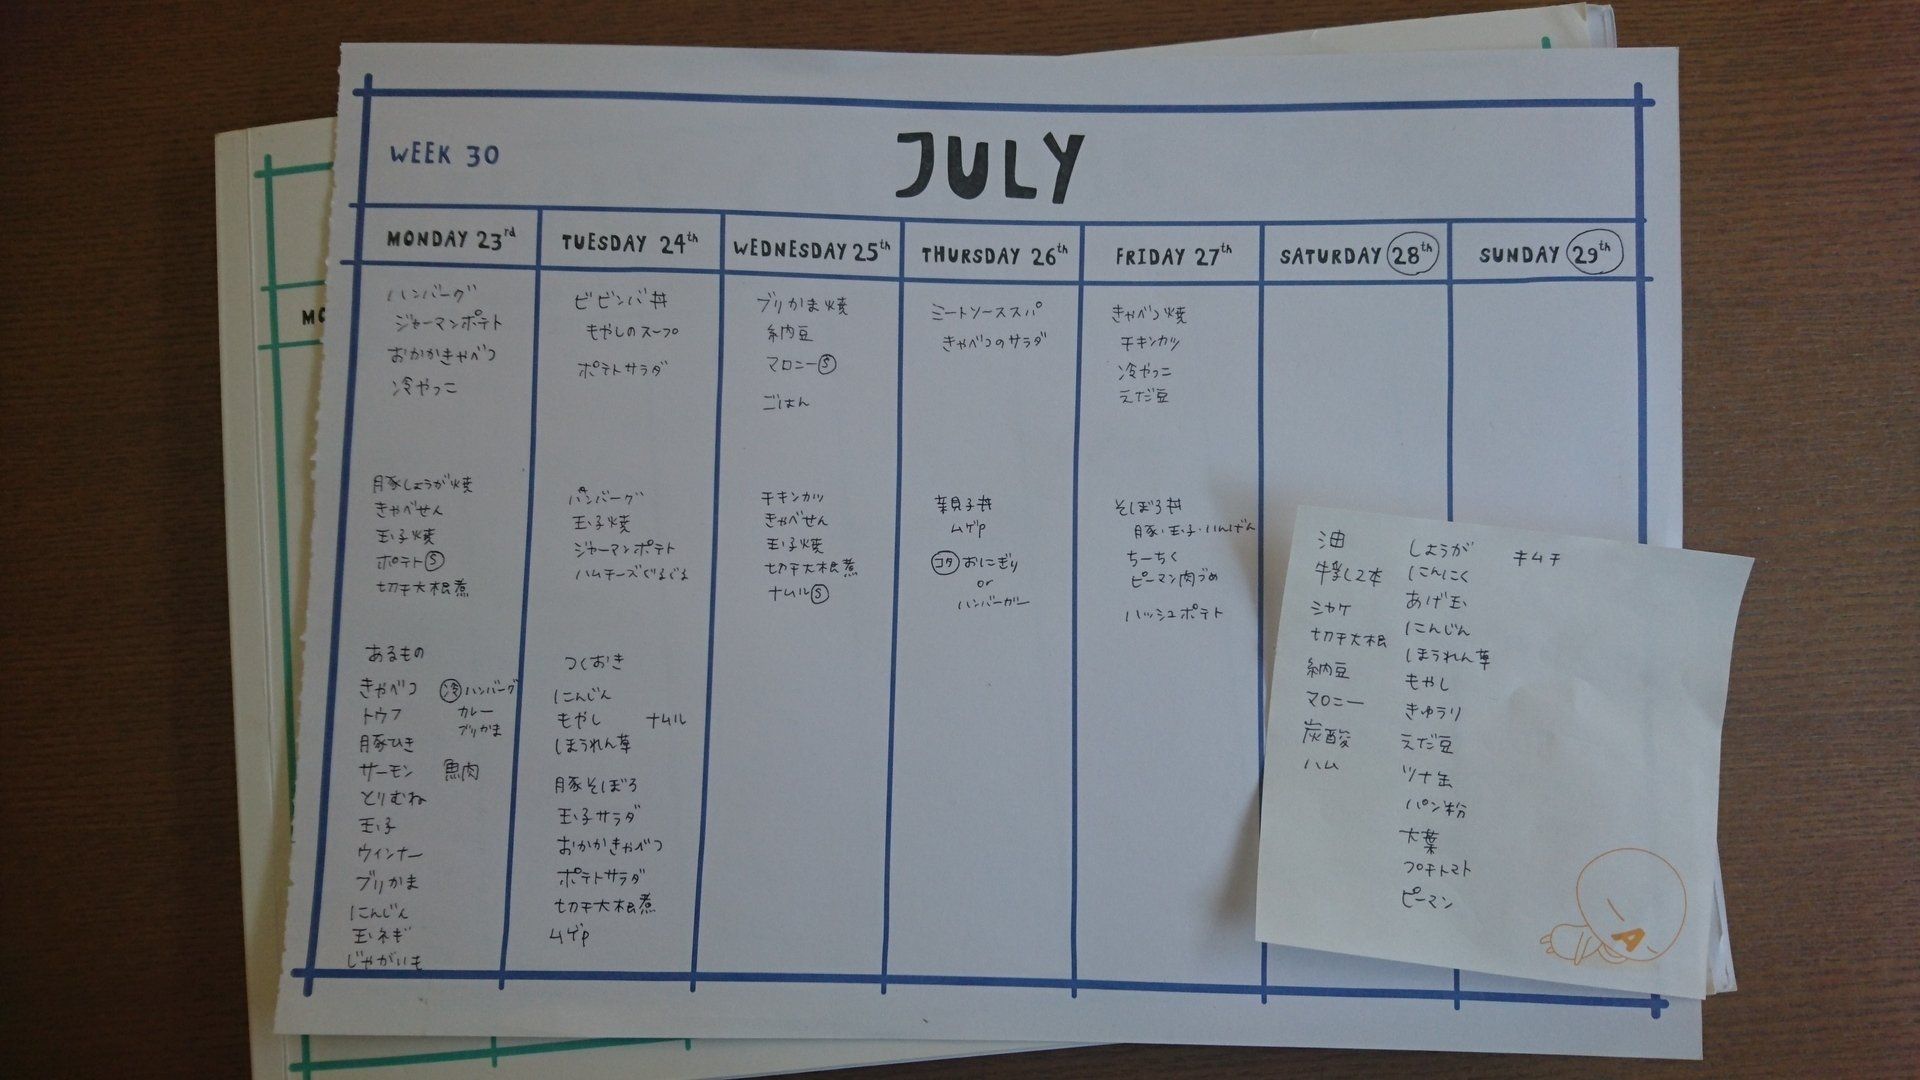 WEEK 30
JULY
MONDAY 23rd
ハンバーグ
ジャーマンポテト
おかかきゃべつ
冷やっこ
豚しょうが焼
きゃべせん
玉子焼
ポテトⓈ
切干大根煮
あるもの
きゃべつ
トウフ
豚ひき
サーモン
とりむね
玉子
ウィンナー
ブリかま
にんじん
玉ネギ
じゃがいも
冷 ハンバーグ
カレー
ブリかま
魚肉
TUESDAY 24th
ビビンバ丼
もやしのスープ
ポテトサラダ
ハンバーグ
玉子焼
ジャーマンポテト
ハムチーズぐるぐる
つくおき
にんじん
もやし ナムル
ほうれん草
豚そぼろ
玉子サラダ
おかかきゃべつ
ポテトサラダ
切干大根煮
ムゲP
WEDNESDAY 25th
ブリかま焼
納豆
マロニーⓈ
ごはん
チキンカツ
きゃべせん
玉子焼
切干大根煮
ナムルⓈ
THURSDAY 26th
ミートソーススパ
きゃべつのサラダ
親子丼
ムゲP
コタ おにぎり
or
ハンバーガー
FRIDAY 27th
きゃべつ焼
チキンカツ
冷やっこ
えだ豆
そぼろ丼
豚・玉子・いんげん
ちーちく
ピーマン肉づめ
ハッシュポテト
SATURDAY 28th
SUNDAY 29th
油
牛乳2本
シャケ
切干大根
納豆
マロニー
炭酸
ハム
しょうが
にんにく
あげ玉
にんじん
ほうれん草
もやし
きゅうり
えだ豆
ツナ缶
パン粉
大葉
プチトマト
ピーマン
キムチ
MO